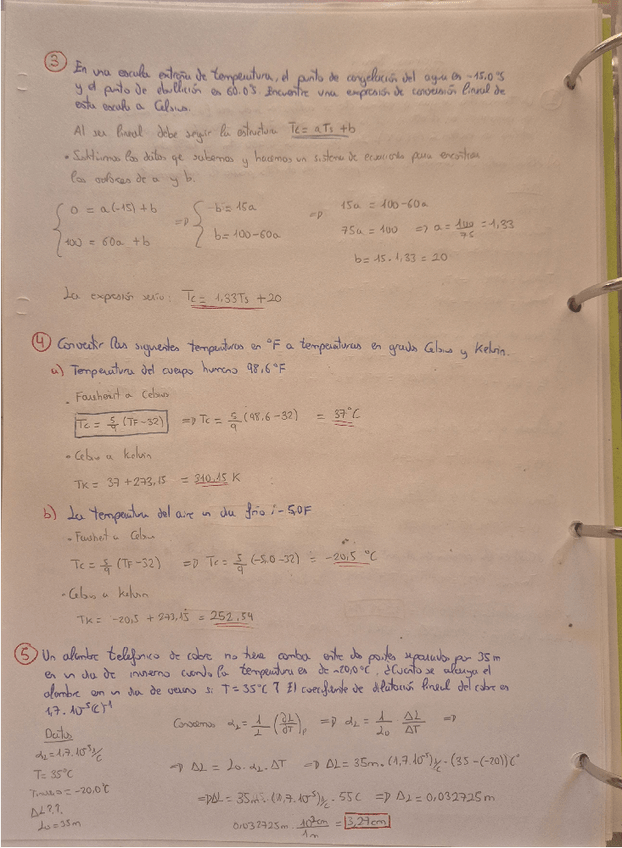 3 En una escala extraña de temperatura, el punto de congelación del agua es -15.0°S
y el punto de ebullición es 60.0°S. Encuentre una expresión de conversión lineal de
esta escala a Celsius.
Al ser lineal debe seguir la estructura Tc = aTs + b
• Sustituimos los datos que sabemos y hacemos un sistema de ecuaciones para encontrar
los valores de a y b.
0 = a(-15) + b ⇒ b = 15a ⇒ 15a = 100 - 60a
100 = 60a + b b = 100 - 60a 75a = 100 ⇒ a = 100/75 = 1,33
b = 15 · 1,33 = 20
La expresión sería: Tc = 1,33Ts + 20
4 Convertir las siguientes temperaturas en °F a temperaturas en grados Celsius y Kelvin.
a) Temperatura del cuerpo humano 98,6°F
• a Celsius
Tc = 5/9 (TF - 32) ⇒ Tc = 5/9 (98.6 - 32) = 37°C
• Celsius a Kelvin
TK = 37 + 273,15 = 310.15 K
b) La temperatura del aire un día frío: -5,0F
• a Celsius
Tc = 5/9 (TF - 32) ⇒ Tc = 5/9 (-5.0 - 32) = -20,5 °C
• Celsius a Kelvin
TK = -20,5 + 273,15 = 252.54
5 Un alambre telefónico de cobre no tiene comba entre dos postes separados por 35m
en un día de invierno cuando la temperatura es de -20,0°C, ¿Cuánto se alarga el
alambre en un día de verano si T = 35°C? El coeficiente de dilatación lineal del cobre es
1,7 · 10⁻⁵ (°C)⁻¹
Datos
αL = 1,7 · 10⁻⁵ 1/°C
T = 35°C
-20,0°C
ΔL??
L0 = 35m
Conocemos αL = 1/L (∂L/∂T)p ⇒ αL = 1/L0 ΔL/ΔT ⇒
⇒ ΔL = L0 · αL · ΔT ⇒ ΔL = 35m · (1,7 · 10⁻⁵) 1/°C · (35 - (-20))°C
⇒ ΔL = 35m · (1,7 · 10⁻⁵) 1/°C · 55°C ⇒ ΔL = 0,032725m
0,032725m · 10²cm/1m = 3,27cm